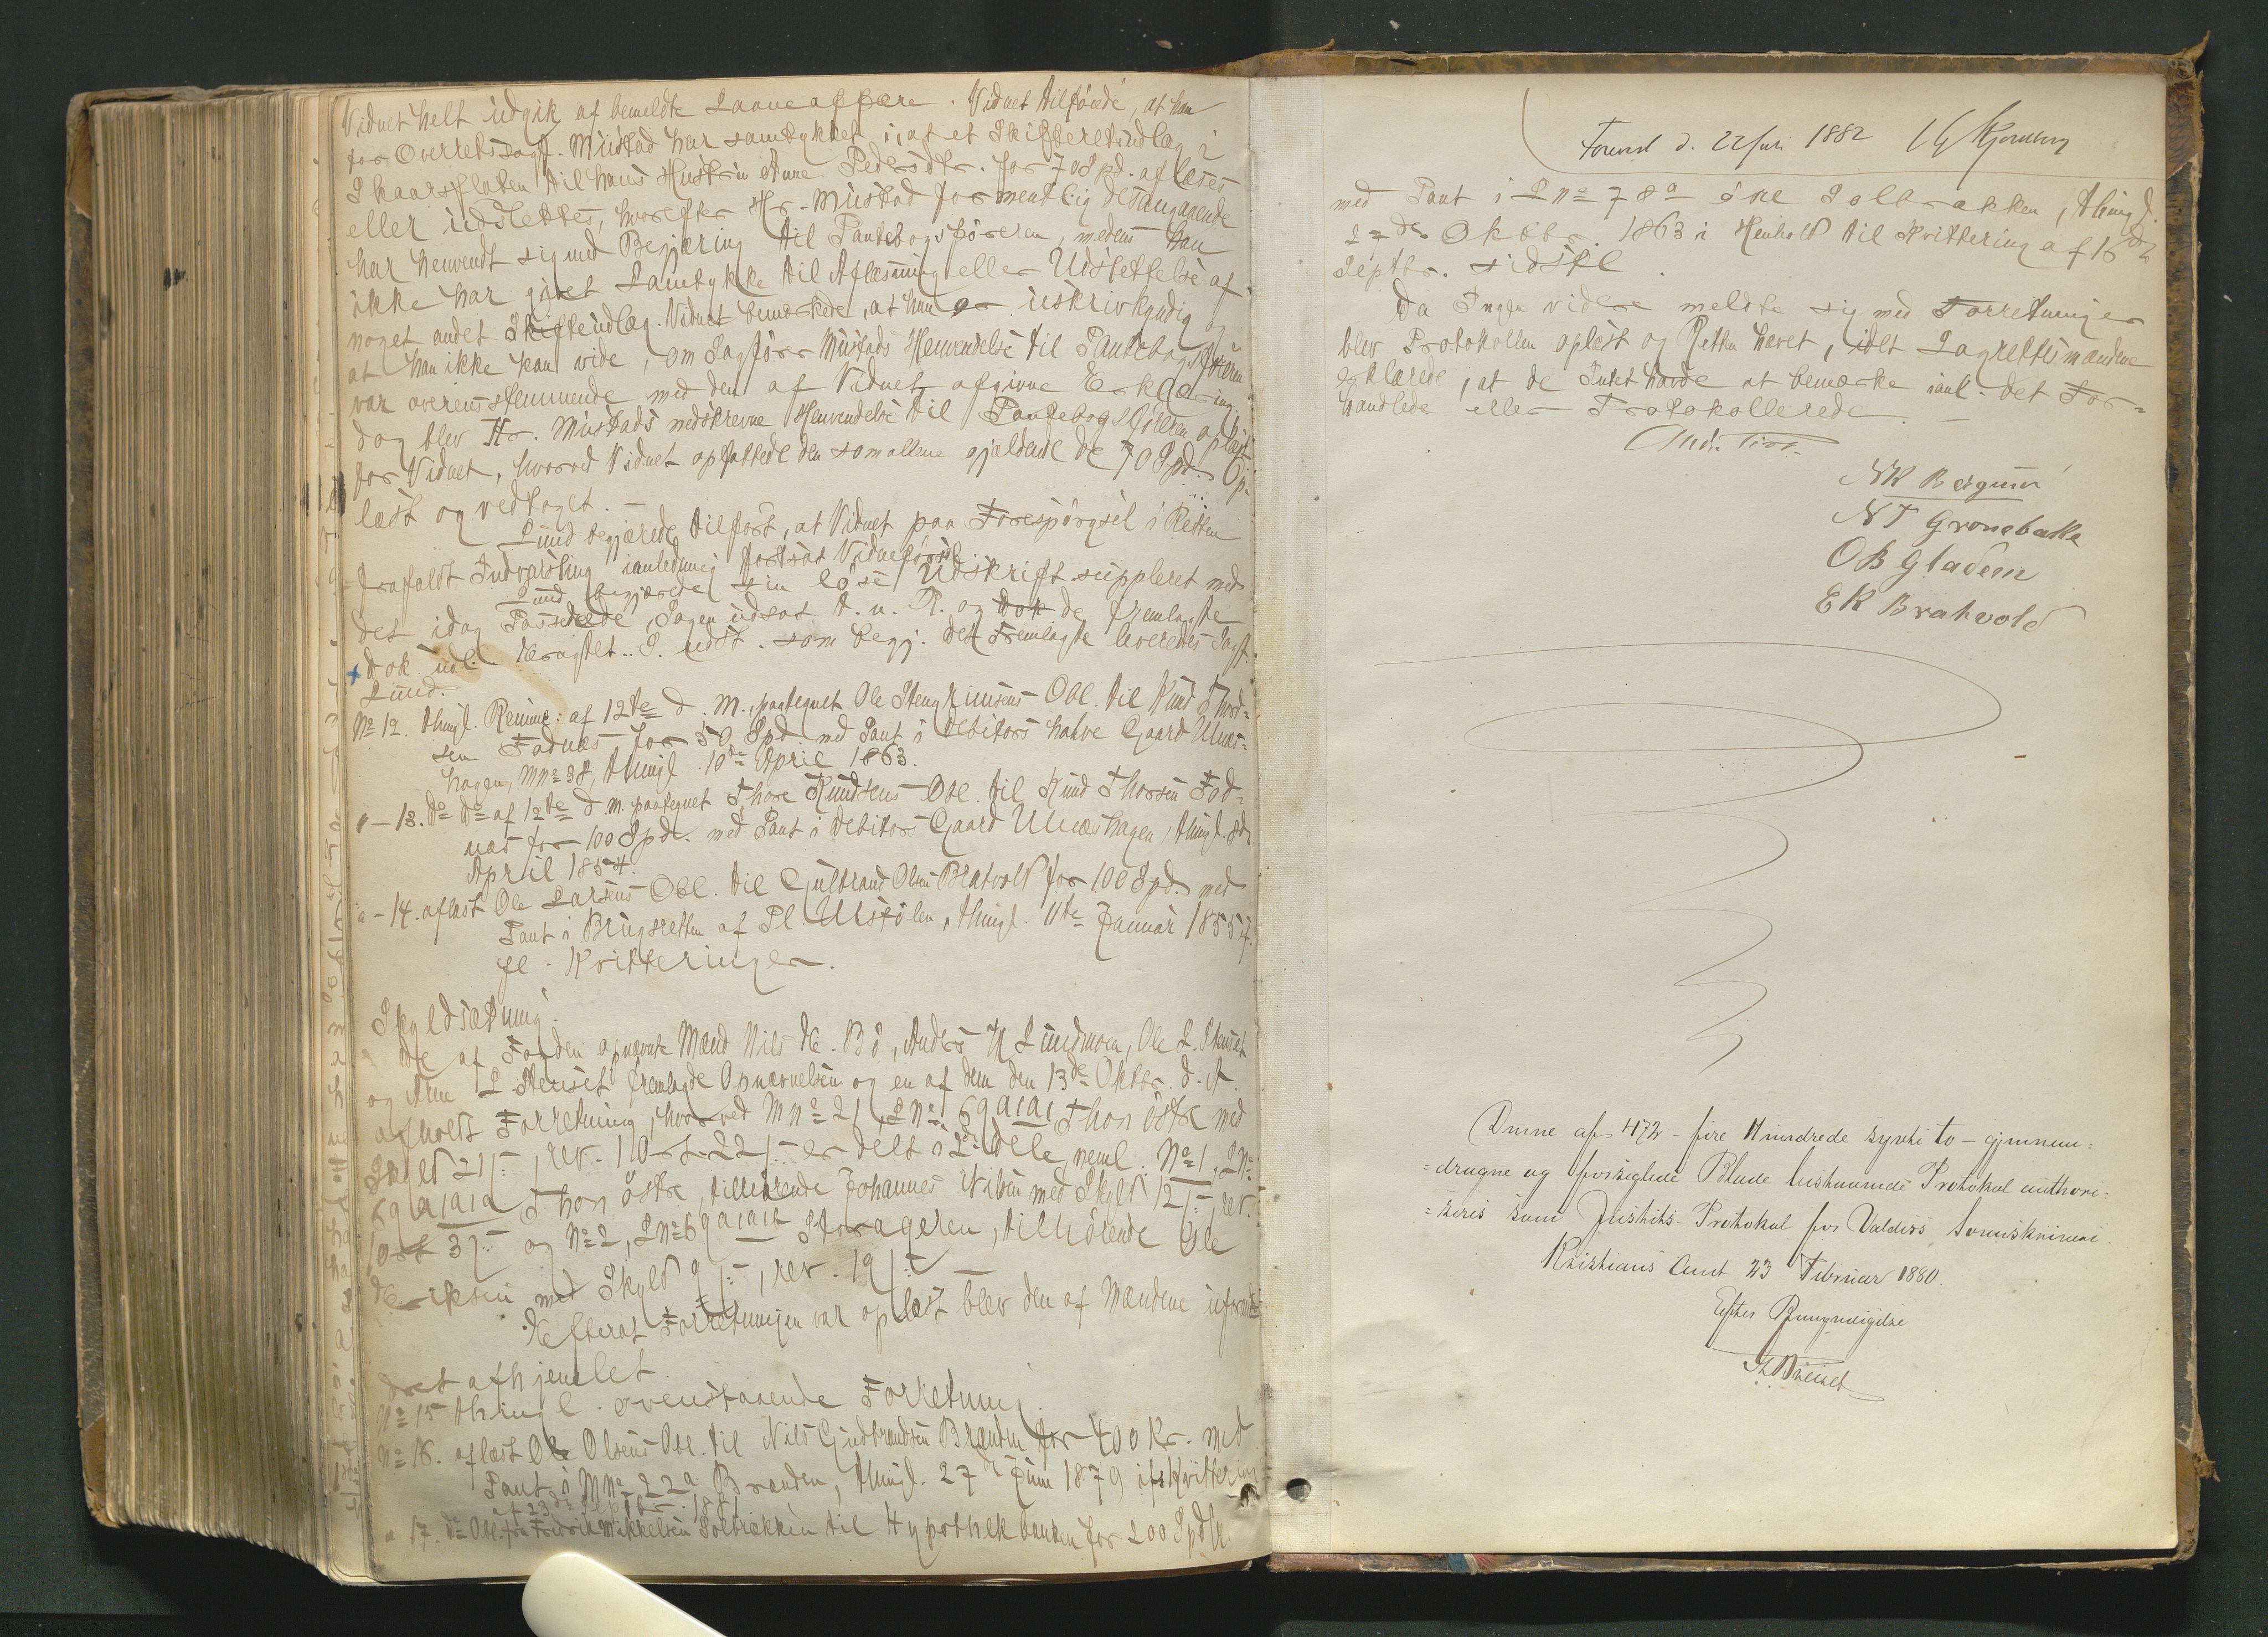 Vidnet helt udgik af bemeldte Laaneaffære. Vidnet tilføiede, at han
for Overretssagf. Mustad har samtykket i, at et Skifteretsudlæg i
Skaarsflaten til hans Hustru Anne Pedersdtr. for 70 Spd. aflæses
eller udslettes, hvorefter Hr. Mustad formentlig desangaaende
har henvendt sig med Begjæring til Pantebogsføreren, medens han
ikke har givet Samtykke til Aflæsning eller Udslettelse af
noget andet Skifteudlæg. Vidnet bemærkede, at han er uskrivkyndig og
at han ikke kan vide, om Sagfører Mustads Henvendelse til Pantebogsføreren
var overensstemmende med den af Vidnet afgivne Erklæring.
dog blev Hr. Mustads nedskrevne Henvendelse til Pantebogsføreren oplæst
for Vidnet, hvorved Vidnet opfattede den som allene gjældende de 70 Spd. Op-
læst og vedtaget.
Lund begjærede tilført, at Vidnet paa Forespørgsel i Retten
frafaldt Indvarsling i anledning fortsat Vidneførsel
Lund begjærede sin løse Udskrift suppleret med
det idag Passerede, Sagen udsat t. n. R. og de fremlagte
Dok. udl. Eragtet: S. udst. som begj. Det Fremlagte leveredes Sagf.
Lund.
No 12. thingl. Reminc. af 12te d. M., paategnet Ole Stengrimsens Obl. til Knud Thord=
sen Fodnæs for 50 Spd. med Pant i Debitors halve Gaard Ulnæs=
hagen, Mno 38, thingl. 10de April 1863.
" - 13. do do af 12te d. M. paategnet Thore Knudsens Obl. til Knud Thorsen Fod=
næs for 100 Spd. med Pant i Debitors Gaard Ulnæshagen, thingl. 8de
April 1854.
" - 14. aflæst Ole Larsens Obl. til Gulbrand Olsen Bratvold for 100 Spd. med
Pant i Brugsretten af Pl. Ulsfølen, thingl. 11te Januar 1855
fl. Kvitteringer.
Skyldsætning.
De af Fogden opnævnte Mænd Nils E. Bø, Anders N Lundmoen, Ole L. Stenset
og Arne L Stenset fremlagde Opnævnelsen og en af dem den 13de Oktbr. d. A.
afholdt Forretning, hvorved Mno 21, Lno 69 a1a1 Thon østre med
er delt i 2de Dele, neml. No 1, Lno
69 a1a1a Thon østre, tilhørende Johannes Nilsen med Skyld
og No 2, Lno 69 a1a1b Storageren, tilhørende Ole
Eriksen med Skyld
Efterat Forretningen var oplæst blev den af Mændene ufor=
dret afhjemlet
No 15 thingl. ovenstaaende Forretning.
No 16. aflæst Ole Olsens Obl. til Nils Gudbrandsen Brænden for 400 Kr. med
Pant i Mno 22a Brænden, thingl. 27de Juni 1879 ifl. Kvittering
af 23de Septbr. 1881
" 17. do Obl. fra Fredrik Mikkelsen Solbrækken til Hypothekbanken for 200 Spd.
Forevist d. 22 Juni 1882
med Pant i Lno 78a øvre Solbrækken, thingl.
27de Oktbr. 1863 i Henhold til Kvittering af 16de
Septbr. sidstl.
Da Ingen videre meldte sig med Forretninger
blev Protokollen oplæst og Retten hævet, idet Lagrettesmændene
erklærede, at de Intet havde at bemærke i anl. det For=
handlede eller Protokollerede
NK Bergum
NT Gronebakke
OB Gladem
EK Brahvold
Denne af 472 - fire Hundrede syvti to - gjennem=
=dragne og forseglede Blade bestaaende Protokol authori=
=seres som Justits-Protokol for Valders Sorenskriveri.
Kristians Amt 23 Februar 1880.
Efter Bemyndigelse